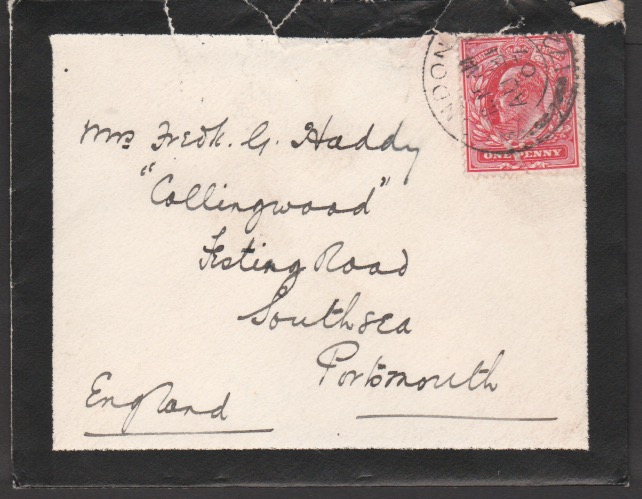 Mrs Fredk. G. Haddy
"Collingwood"
Festing Road
Southsea
Portsmouth
England
ONE PENNY